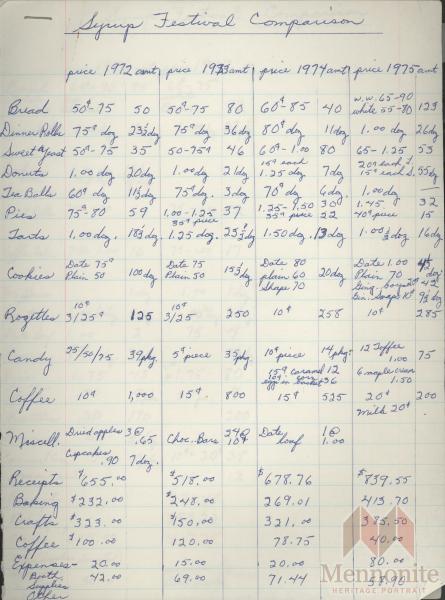 Syrup Festival Comparison
price 1972 amt price 1973 amt price 1974 amt price 1975 amt
Bread 50¢-75 50 50¢-75 80 60¢-85 40 w.w. 65-90 white 55-80 123
Dinner Rolls 75¢ doz 23½ doz 75¢ doz 36 doz 80¢ doz 11 doz 1.00 doz 26 doz
Sweet Yeast 50¢-75 35 50-75¢ 46 60¢-1.00 80 65-1.25 53
Donuts 1.00 doz 20 doz 1.00 doz 21 doz 15¢ each 1.25 doz 7 doz 20¢ each 15¢ each 55 doz
Tea Balls 60¢ doz 11½ doz 75¢ doz 3 doz 70¢ doz 6 doz 1.00 doz —
Pies 75¢-80 59 1.00-1.25 35¢ piece 37 1.25-1.50 30 35¢ piece 22 1.45 32 40¢ piece 15
Tarts 1.00 doz. 18½ doz 1.25 doz. 25½ doz 1.50 doz. 13 doz 1.00 ½ doz 16 doz
Cookies Date 75¢ Plain 50 100 doz Date 75 Plain 50 15½ doz Date 80 plain 60 Shape 70 20 doz Date 1.00 Plain 70 Ging. boys 20¢ 42
Rozettes 10¢ 3/25¢ 125 10¢ 3/25 250 10¢ 258 10¢ 285
Candy 25/50/75 39 pkg. 5¢ piece 35 pkg 10¢ piece 14 pkgs 15¢ caramel 12 egg in basket 36 12 Toffee 1.00 75 6 maple cream 1.50
Coffee 10¢ 1,000 15¢ 800 15¢ 525 20¢ 200 Milk 20¢
Miscell. Dried apples 3@ .65 Choc. Bars 24@ 10¢ Date loaf 1@ 1.00
Cupcakes .90 7 doz.
Receipts $655.00 $518.00 $678.76 $839.55
Baking $232.00 $248.00 269.01 413.70
Crafts $323.00 $150.00 321.00 385.50
Coffee $100.00 120.00 78.75 40.00
Expenses- 20.00 15.00 20.00 80.00
Booth Supplies 42.00 69.00 71.44 38.90
Other
Mennonite
HERITAGE PORTRAIT